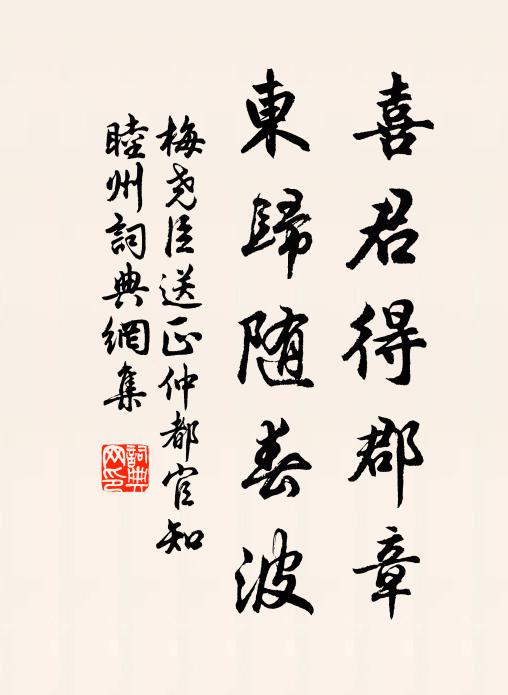 喜君得郡章
東歸隨春波
梅尧臣送正仲都官知
睦州詞典網集
詞典
网印